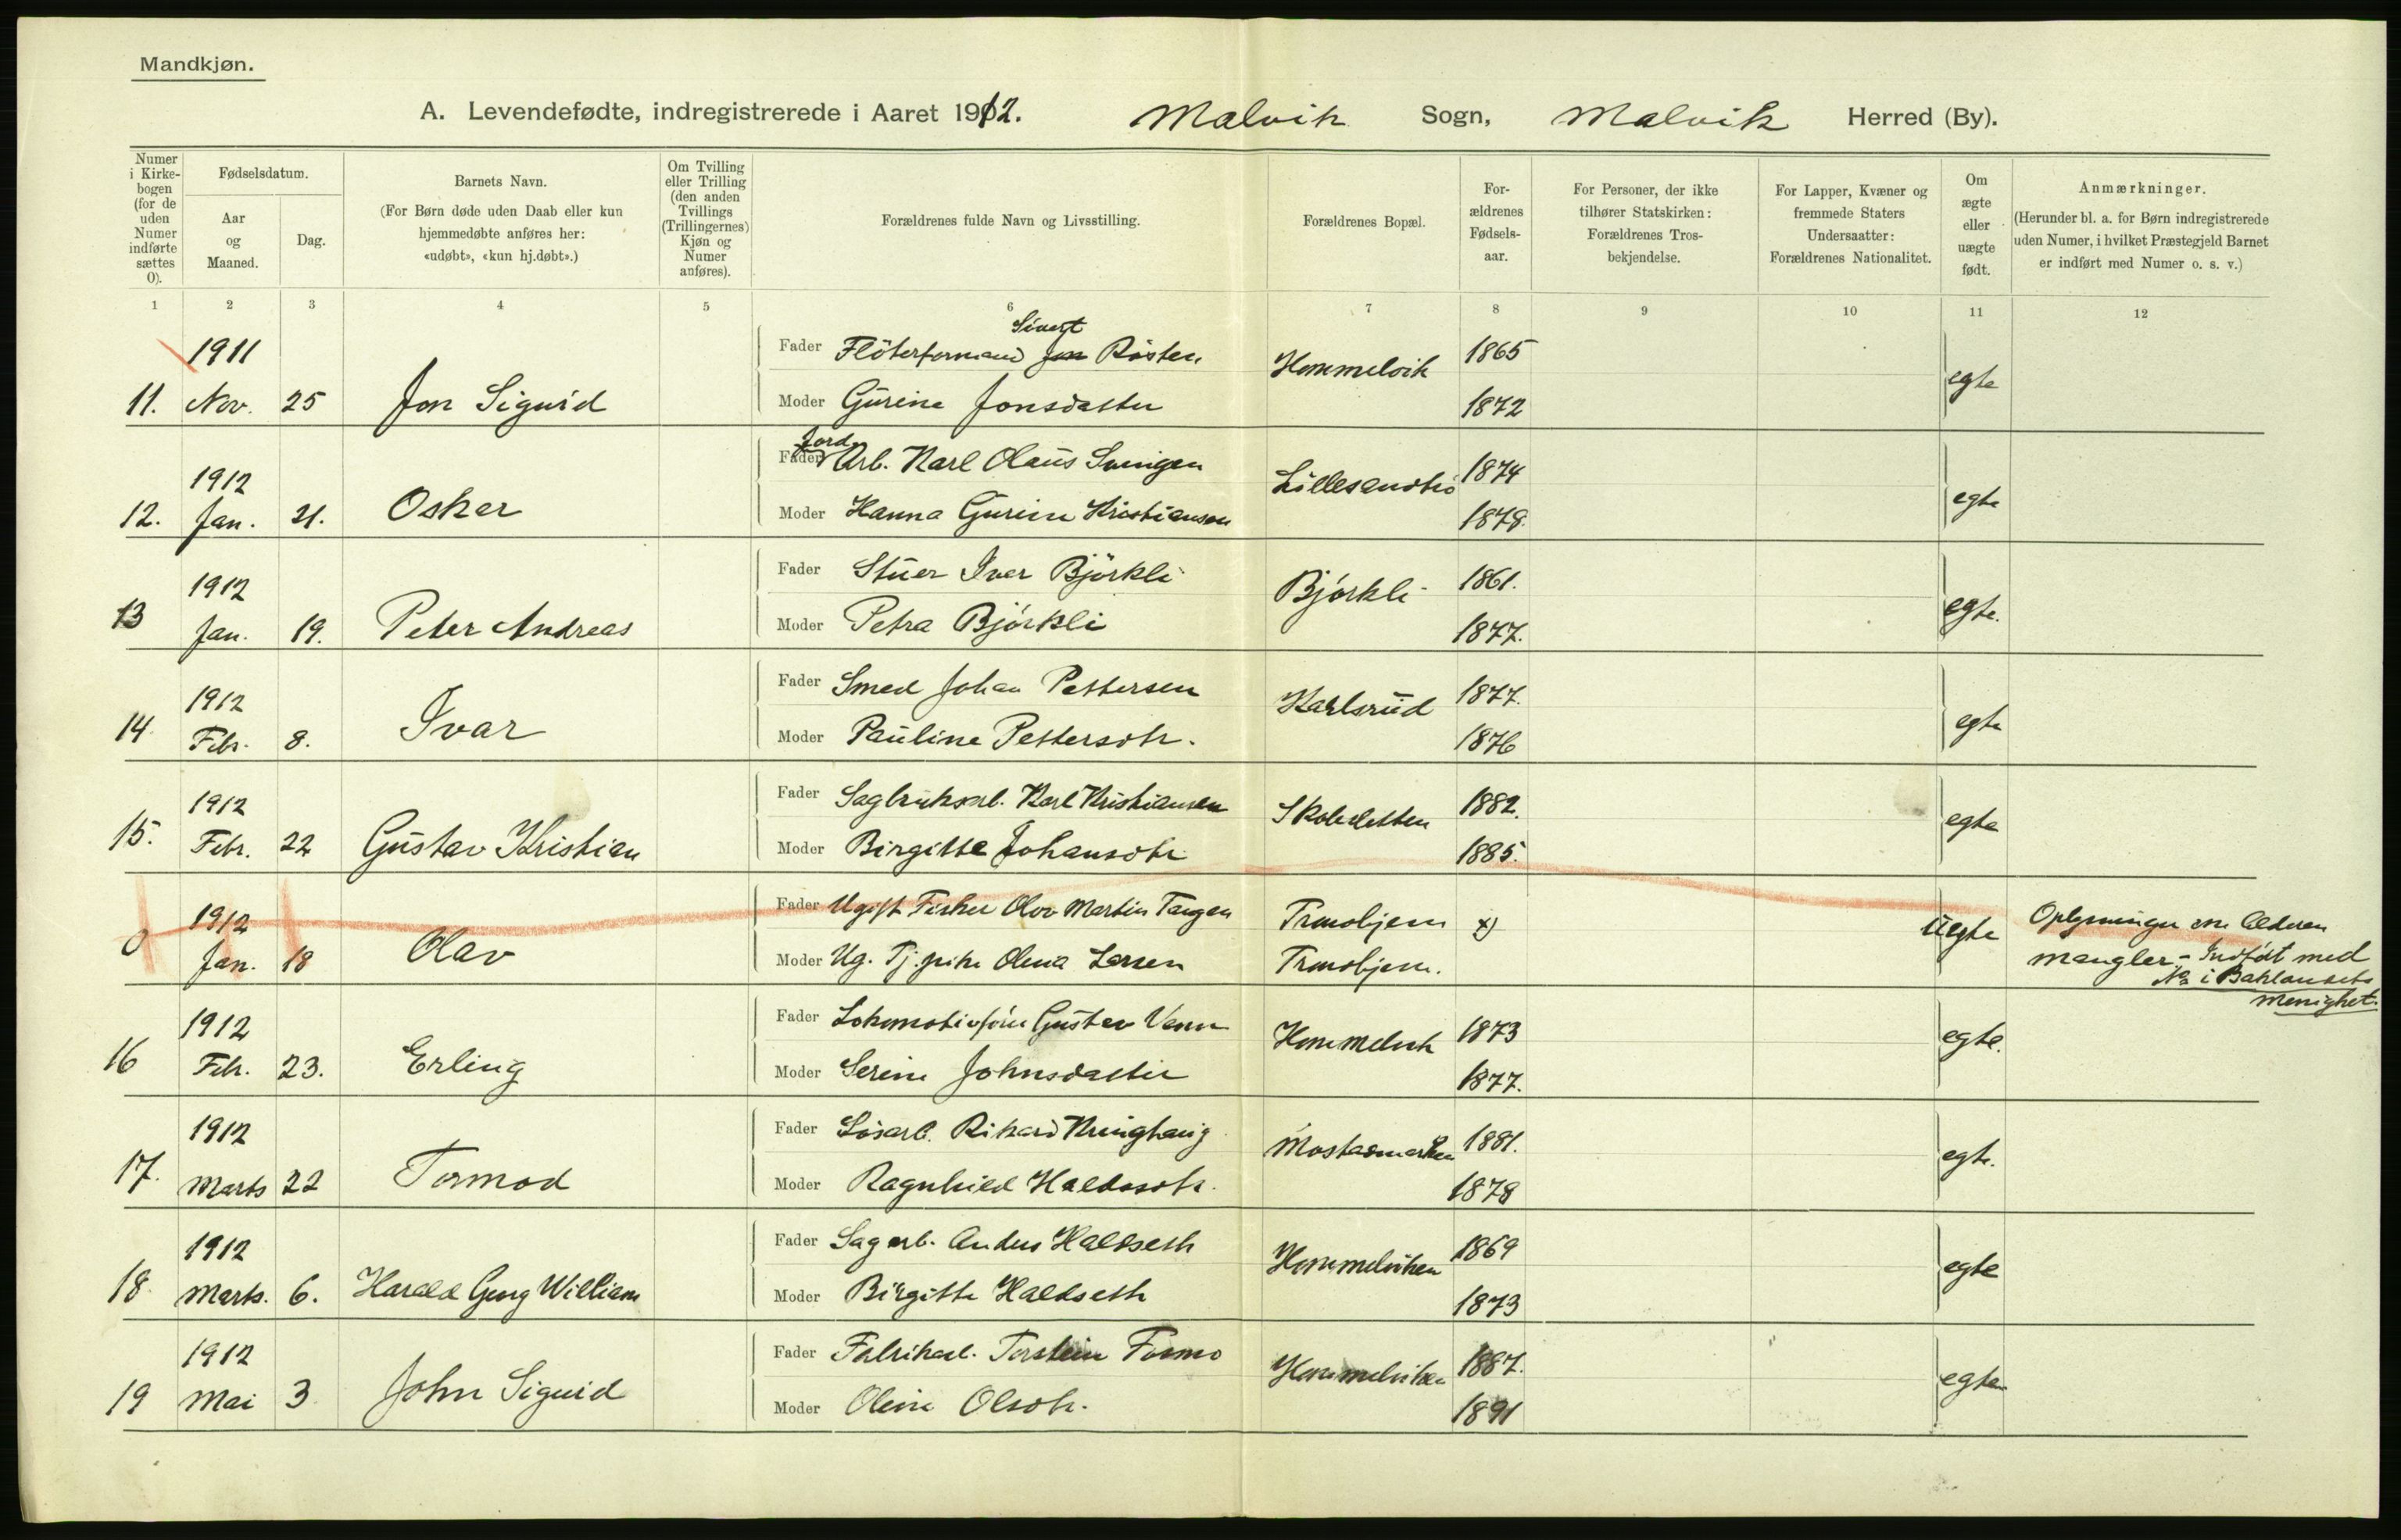 Mandkjøn.
A. Levendefødte, indregistrerede i Aaret 1912. Malvik Sogn, Malvik Herred (By).
Numer i Kirkebogen (for de uden Numer indførte sættes 0).
Fødselsdatum.
Aar og Maaned.
Dag.
Barnets Navn.
(For Børn døde uden Daab eller kun hjemmedøbte anføres her: «udøbt», «kun hj.døbt».)
Om Tvilling eller Trilling (den anden Tvillings (Trillingernes) Kjøn og Numer anføres).
Forældrenes fulde Navn og Livsstilling.
Forældrenes Bopæl.
Forældrenes Fødselsaar.
For Personer, der ikke tilhører Statskirken: Forældrenes Trosbekjendelse.
For Lapper, Kvæner og fremmede Staters Undersaatter: Forældrenes Nationalitet.
Om ægte eller uægte født.
Anmærkninger.
(Herunder bl. a. for Børn indregistrerede uden Numer, i hvilket Præstegjeld Barnet er indført med Numer o. s. v.)
1 2 3 4 5 6 7 8 9 10 11 12
1911 Fader Flöterformand Sivert Røsten Hommelvik 1865 egte
11. Nov. 25 Jon Sigurd Moder Gurine Jonsdatter 1872
1912 Fader Jord Arb. Karl Olaus Svingen 1874 egte
12. Jan. 21. Oskar Moder Hanna Gurine Kristiansen 1878
1912 Fader Stuer Iver Björkli Björkli 1861. egte.
13 Jan. 19. Peter Andreas Moder Petra Björkli 1877.
1912 Fader Smed Johan Pettersen Karlsrud 1877. egte
14 Febr. 8. Ivar Moder Pauline Pettersdtr. 1876
1912 Fader Sagbruksarb. Karl Kristiansen 1882. egte
15. Febr. 22 Gustav Kristian Moder Birgitte Johansdtr 1885.
1912 Fader Ugift Fisker Olav Martin Tangen Trondhjem x) Uegte Oplysninger om Alderen
0 Jan. 18 Olav Moder Ug. Tj.pike Olena Larsen Trondhjem. mangler - Indført med
No i Baklandets
menighet.
1912 Fader Lokomotivfører Gustav Venn Hommelvik 1873 egte.
16 Febr. 23. Erling Moder Serine Johnsdatter 1877.
1912 Fader Løsarb. Rikard Kringhaug Mostadmarken 1881. egte.
17. Marts 22 Tormod Moder Ragnhild Haldosdtr. 1878
1912 Fader Sagarb. Anders Haldseth Hommelviken 1869 egte
18 Marts. 6. Harald Georg William Moder Birgitte Haldseth 1873
1912 Fader Fabrikarb. Torstein Formo Hommelviken 1887. egte
19 Mai 3 John Sigurd Moder Oline Olsdtr. 1891